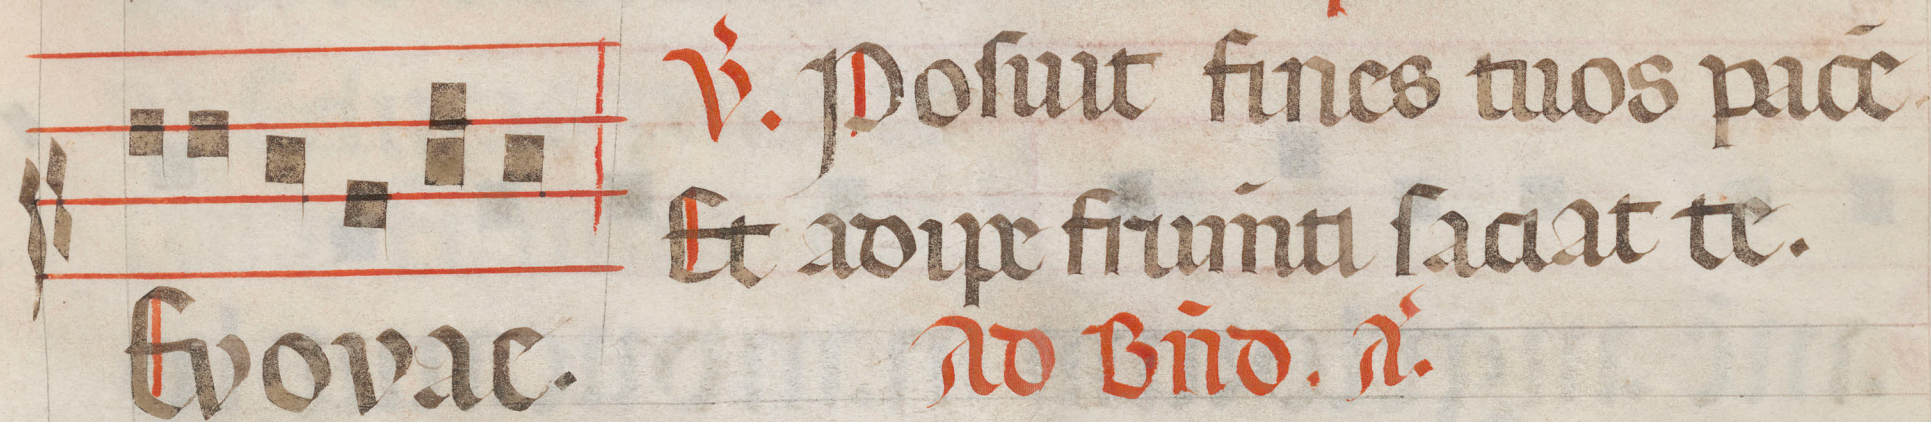 ℣. Posuit fines tuos pacē
Et adipe frumēti saciat te.
Evovae. Ad Bn̄d. A̾.